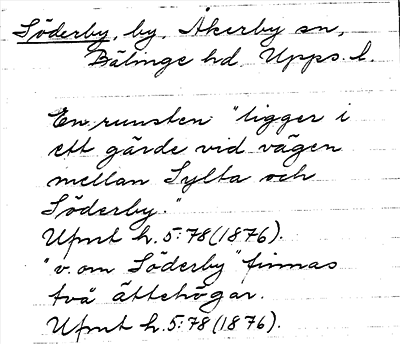 Söderby, by, Åkerby sn,
Bälinge hd. Upps. l.
En runsten "ligger i
ett gärde vid vägen
mellan Sylta och
Söderby."
Ufmt h. 5:78 (1876).
"v. om Söderby" finnas
två ättehögar.
Ufmt h. 5:78 (1876).